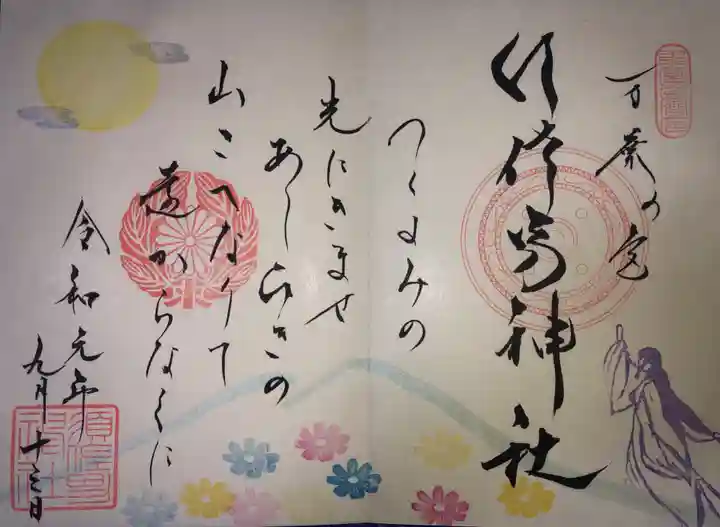 万葉の宮
須佐男神社
つくよみの
光にきませ
あしひきの
山きへなりて
遠からなくに
令和元年
九月十三日